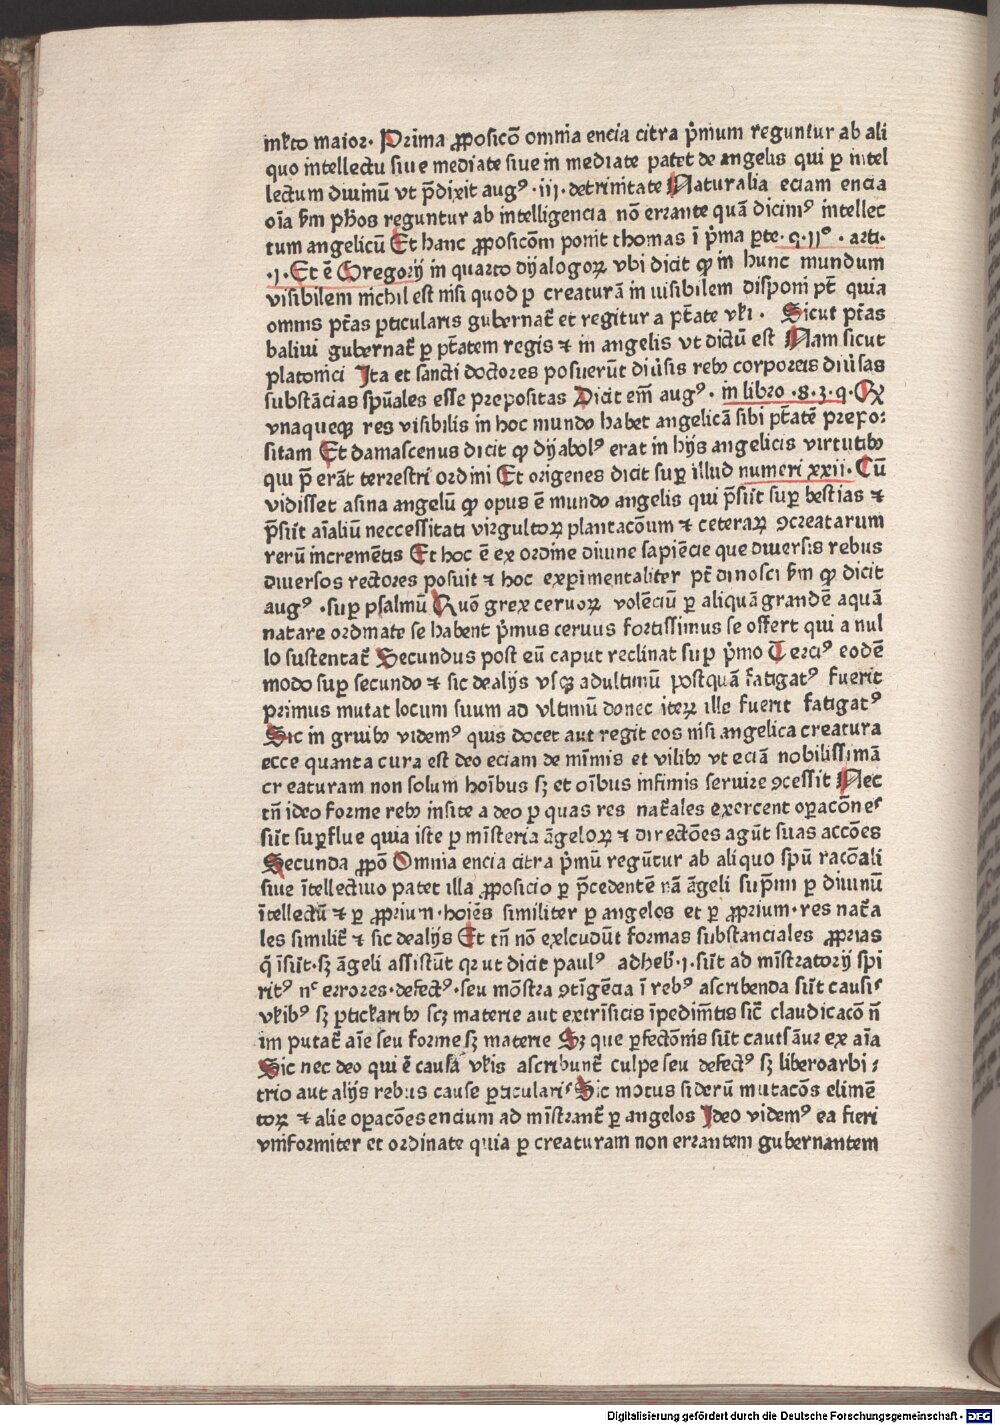 mľco maior· Prima ꝓposicō omnia encia citra p̄mum reguntur ab ali
quo intellectu siue mediate siue in mediate patet de angelis qui ꝑ intel
lectum diuinū vt p̄dixit augꝰ ·iii· detrinitate Naturalia eciam encia
oīa s̄m ph̄os reguntur ab intelligencia nō errante quā dicimꝰ intellec
tum angelicū Et hanc ꝓposicōm ponit thomas ī p̄ma ꝑte· q·11º· arti·
·1· Et ē Gregorij in quarto dyalogoꝝ vbi dicit ꝙ in hunc mundum
visibilem nichil est nisi quod ꝑ creaturā in uisibilem disponi pt̄ quia
omnis pt̄as ꝑticularis gubernat̄ et regitur a pt̄ate vľi · Sicut pt̄as
baliui gubernat̄ ꝑ pt̄atem regis ⁊ in angelis vt dictū est Nam sicut
platonici Ita et sancti doctores posuerūt diūsis reb⁹ corporeis diūsas
substācias spūales esse prepositas Dicit em̄ augꝰ · in libro ·8·3·q· Qꝙ
vnaqueqꝫ res visibilis in hoc mundo habet angelicā sibi ptātē prepo⸗
sitam Et damascenus dicit ꝙ dyabolꝰ erat in hijs angelicis virtutib⁹
qui p̄ erāt terrestri ordini Et origenes dicit suꝑ illud numeri xxii· Cū
vidisset asina angelū ꝙ opus ē mundo angelis qui p̄sūt suꝑ bestias ⁊
p̄sūt aīaliū neccessitati virgultoꝝ plantacōum ⁊ ceteraꝝ ꝯcreatarum
rerū incremētis Et hoc ē ex ordine diuine sapiēcie que diuersis rebus
diuersos rectores posuit ⁊ hoc experimentaliter pt̄ dinosci s̄m ꝙ dicit
augꝰ ·suꝑ psalmū Quō grex ceruoꝝ volēciū ꝑ aliquā grandē aquā
natare ordinate se habent p̄mus ceruus fortissimus se offert qui a nul
lo sustentat̄ Secundus post eū caput reclinat suꝑ p̄mo Terciꝰ eodē
modo suꝑ secundo ⁊ sic dealijs vsqꝫ adultimū postquā fatigatꝰ fuerit
primus mutat locum suum ad vltimū donec iteꝝ ille fuerit fatigatꝰ
Sic in gruib⁹ videmꝰ quis docet aut regit eos nisi angelica creatura
ecce quanta cura est deo eciam de minimis et vilib⁹ vt eciā nobilissimā
creaturam non solum hoībus sꝫ et oībus infimis seruire ꝯcessit Nec
tn̄ ideo forme reb⁹ insite a deo ꝑ quas res nat̄ales exercent oꝑacōnes
sūt suꝑflue quia iste ꝑ mīsteria āgeloꝝ ⁊ directōes agūt suas accōes
Secunda ꝓpō Omnia encia citra p̄mū regūtur ab aliquo spū racōali
siue ītellectiuo patet illa ꝓposicio ꝑ p̄cedentē nā āgeli sup̄mi ꝑ diuinū
ītellectū ⁊ ꝑ ꝓprium·hoiēs similiter ꝑ angelos et ꝑ ꝓprium·res nat̄a
les similit̄ ⁊ sic dealijs Et tn̄ nō exlcudūt formas substanciales ꝓprias
q̄ īsūt·sꝫ āgeli assistūt qr ut dicit paulꝰ adheb̄·1·sūt ad mīstratorij spi
ritꝰ nᶜ errores·defectꝰ·seu mōstra ꝯtīgēcia ī rebꝰ ascribenda sūt causis
vľibꝰ sꝫ ꝑticľarib⁹ scꝫ materie aut extrīsicis īpedimētis sic̄ claudicacō n̄
im putat̄ aīe seu forme sꝫ materie Sꝫ que ꝑfectōnis sūt cautsāur ex aīa
Sic nec deo qui ē causa vľis ascribunt̄ culpe seu defectꝰ sꝫ liberoarbi⸗
trio aut alijs rebus cause ꝑticularis Sic motus siderū mutacōs elimē
toꝝ ⁊ alie oꝑacōes encium ad mīstrant̄ ꝑ angelos Ideo videmꝰ ea fieri
vniformiter et ordinate quia ꝑ creaturam non errantem gubernantem
Digitalisierung gefördert durch die Deutsche Forschungsgemeinschaft - DFG